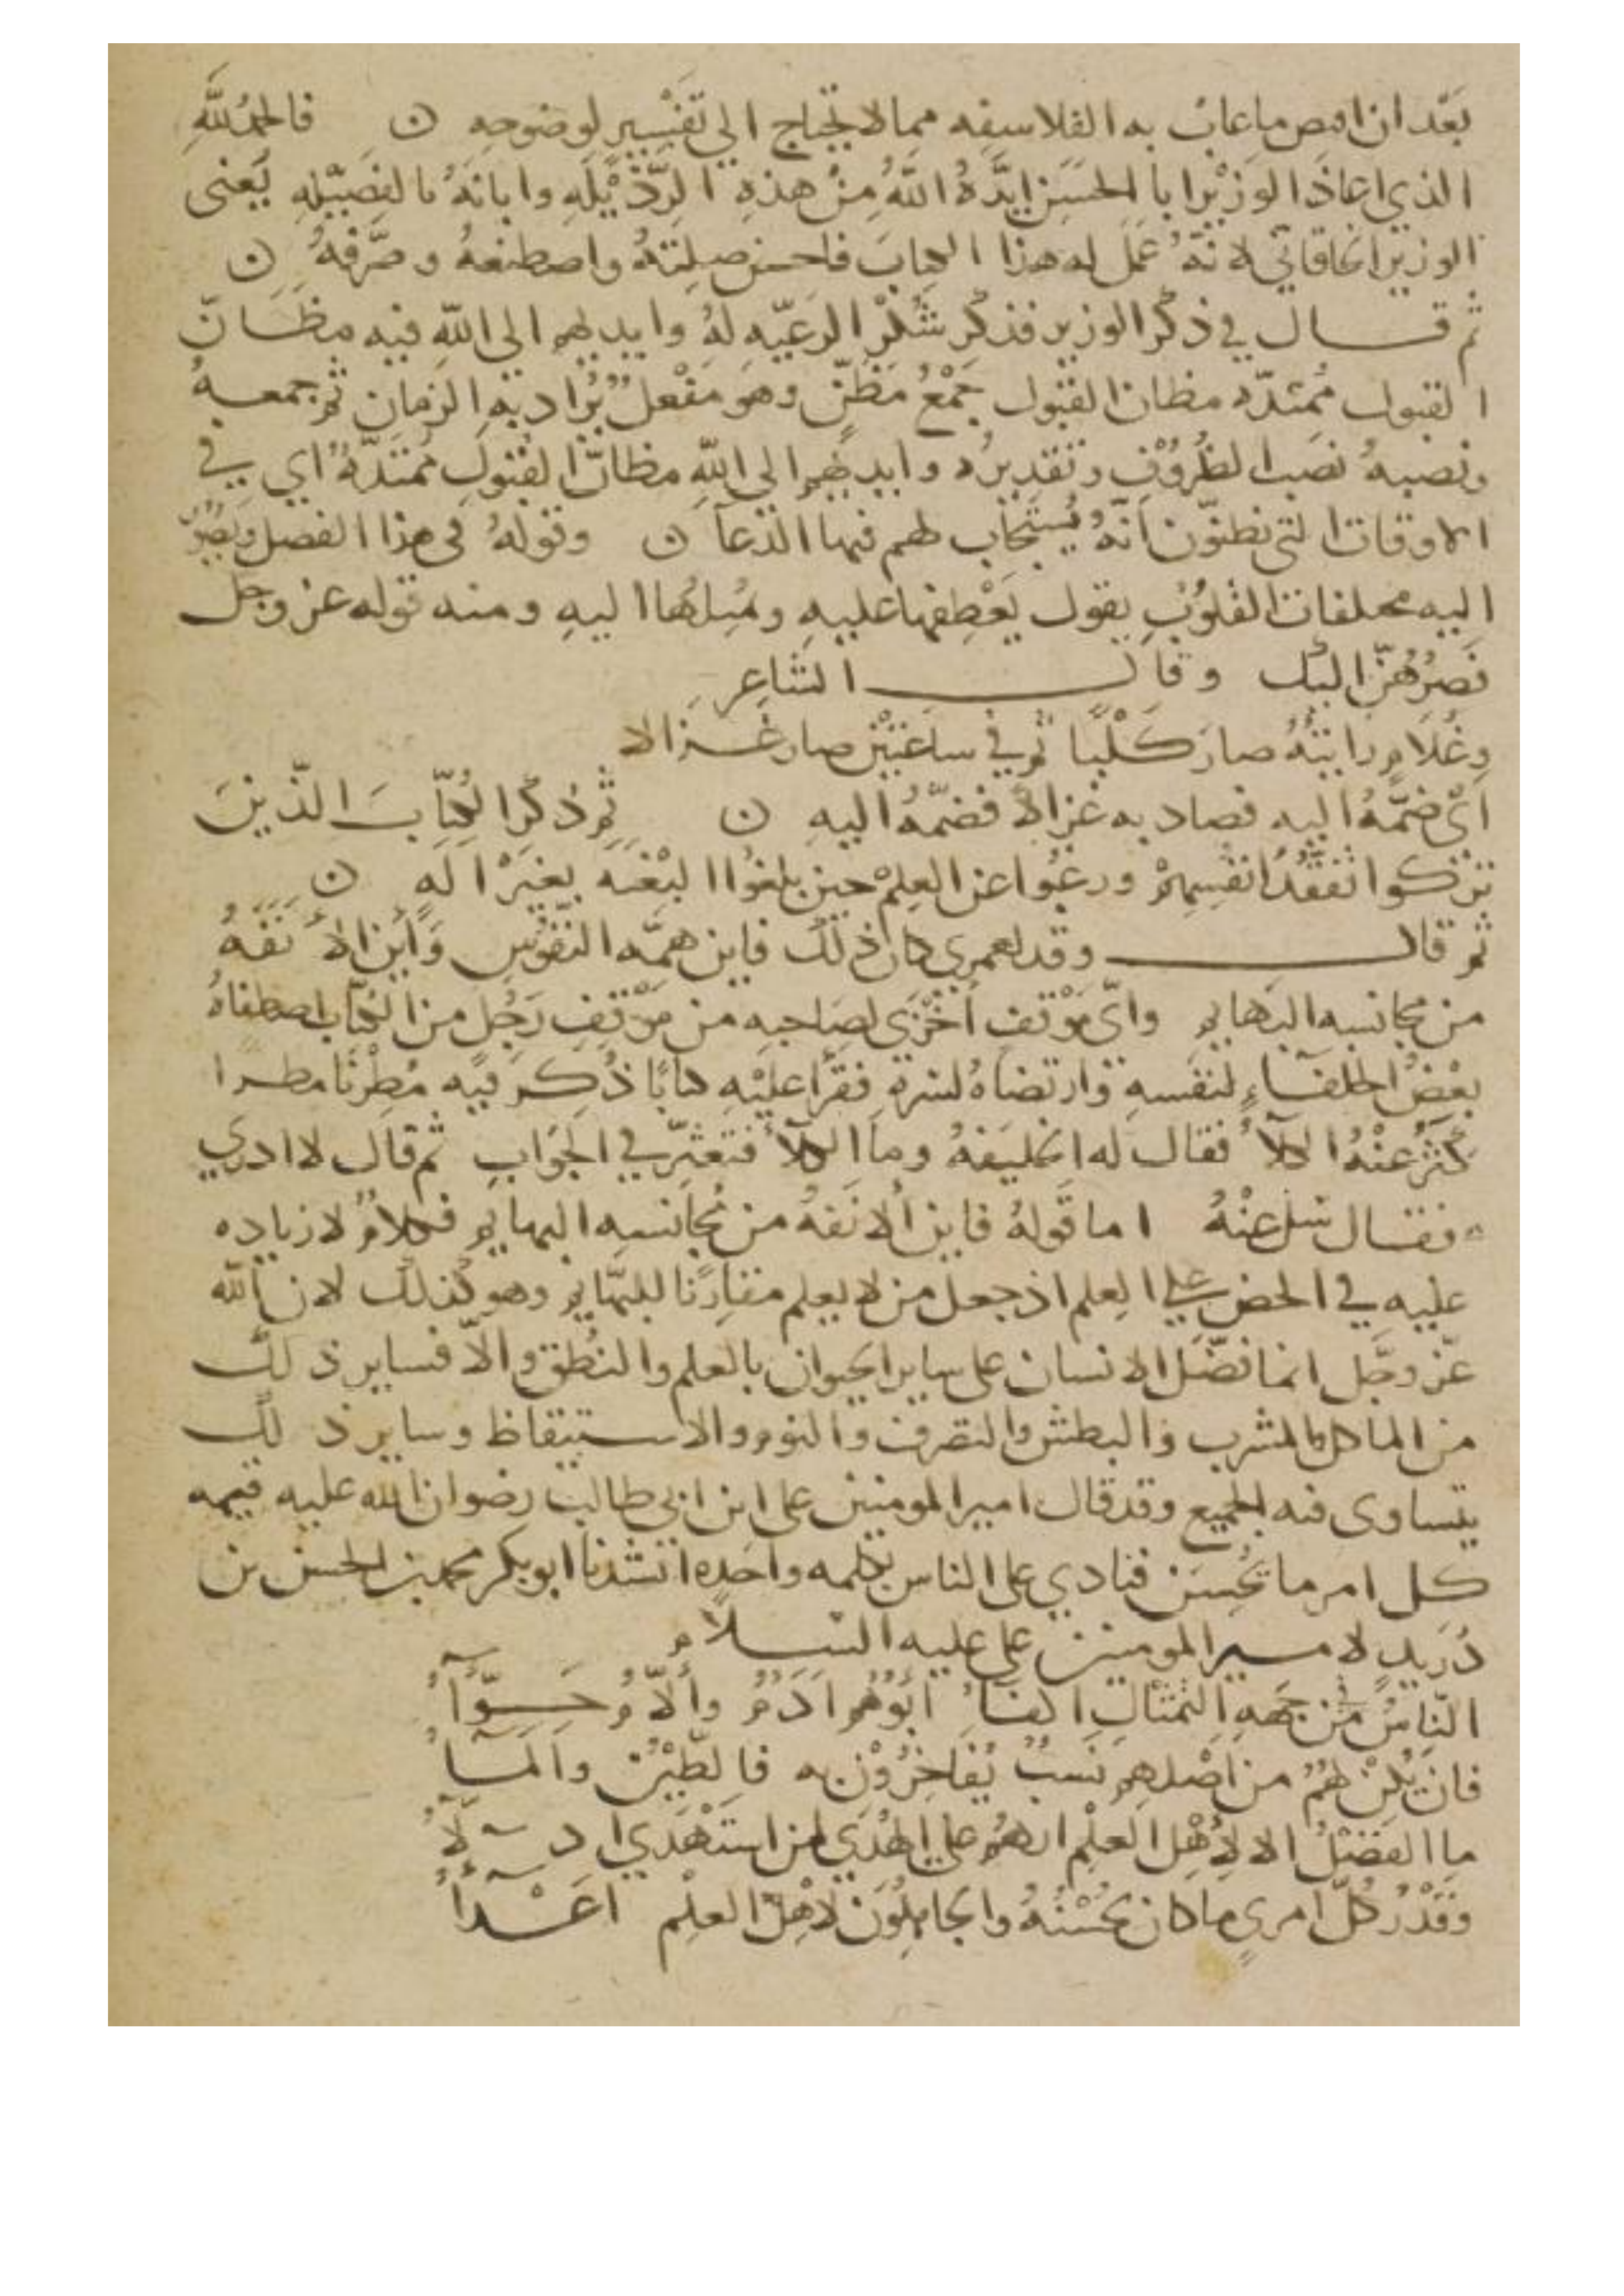 بَعْد ان اقتص ما عاب به الفلاسفه مما لا يحتاج الي تَفْسِيرٍ لوضوحِه ن فالحمدُ للَّهِ
الذي اعاذ الوزيْر ابا الحسَن ايَّدهُ اللَّهُ مِنْ هذهِ الرّذيْلَهِ وابانَهُ بالفضيْلهِ يَعْنى
الوزير الخاقانيّ لانّهُ عَمَل له هذا الكتابَ فاحسن صلتهُ واصطنعهُ وصَرَّفهُ ن
ثم قال في ذكْر الوزير فذكر شُكْر الرعيّه لهُ وايديهم الى اللَّه فيه مظَانّ
القبول مُمتدّه مظان القبول جَمْعُ مَظَنّ وهو مَفْعل يُرَاد بهِ الزمان ثم جمعهُ
ونصبهُ نَصب الظُروْفِ وتقديرُه وايديهم الى اللَّه مظانَّ القبُولِ مُمتَدّهٌ اى في
الاوقات التى نظنّون انّهُ يُستجَاب لهم فيها الدعآ ن وقولهُ فى هذا الفصل ويَصُوْر
اليه مختلفات القلوُبِ يقول يَعْطِفها عليهِ ويُميلهُا اليهِ ومنه قوله عز وجل
فَصُرْهُنّ اليك وقال الشاعِر
وغُلامٍ رايتهُ صارَ كَلْبًا ثم في ساعتَيْن صار غزالا
اىْ ضمّهُ اليه فصاد به غزالا فضمّهُ اليهِ ن ثم ذكر الكُتّابَ الذين
تركوا تفقّدُ انفسِهِمْ ورغبُوا عن العِلمْ حين بلغوا البُغْيه بغيْر الَهٍ ن
ثم قال وقد لعمرِي كان ذلك فاين همّه النّفوُسِ وَأَين الأَنَفَهُ
من مجانسه البَهايم واىّ مَوْقفٍ أَخْزَى لصَاحبهِ من مَوْقفِ رَجُلٍ من الكتّاب اصطفاهُ
بعْضُ الخلفآءِ لنفْسهِ وارتضاهُ لسرهِ فقرَأ عليْهِ كتابًا ذُكِر فيْه مُطِرْنا مطرا
كَثُرَ عنْهُ الكلأ فقال له الخليفهُ وما الكلأ فتعثّر في الجَوابِ ثم قال لا ادرِي
فقال سَل عنْهُ اما قولهُ فاين الانَفهُ من مُجانسه البهايم فكلامٌ لا زياده
عليه في الحضّ علي العِلم اذ جعل من لا يعلم مقارنًا للبهَايم وهو كَذلكَ لانّ اللَّه
عَزّ وجَل انما فضَّل الانسان على ساير الحيوان بالعلم والنُطق والّا فساير ذلك
من الماكل والمشرب والبطش والتصرف والنوم والاستيقاظ وساير ذلك
يتساوى فيه الجميع وقد قال امير المومنين على ابن ابي طالب رضوان اللَّه عليه قيمه
كل امرٍ ما يُحسِن فنادي على الناس بكلمه واحدِه انشدنا ابو بكر محمد بن الحسن بن
دُرَيدٍ لامير المومنين على عليه السلام
النّاسُ مِن جهَهِ التّمثالِ اكفآءُ ابُوهُم آدَمُ والأُمُّ حَوّآءُ
فان يكُنْ لهُمُ من اصْلهم نسَبٌ يُفَاخِرُوْن به فالطّيْنُ والمآءُ
ما الفضْلُ الا لأهْلِ العِلْم انهُمُ على الهُدَي لمن استَهْدَي ادلآءُ
وقَدْرُ كلّ امريٍ ما كان يُحْسِنُهُ والجاهِلُوْن لأهْل العِلْم اعْدآءُ